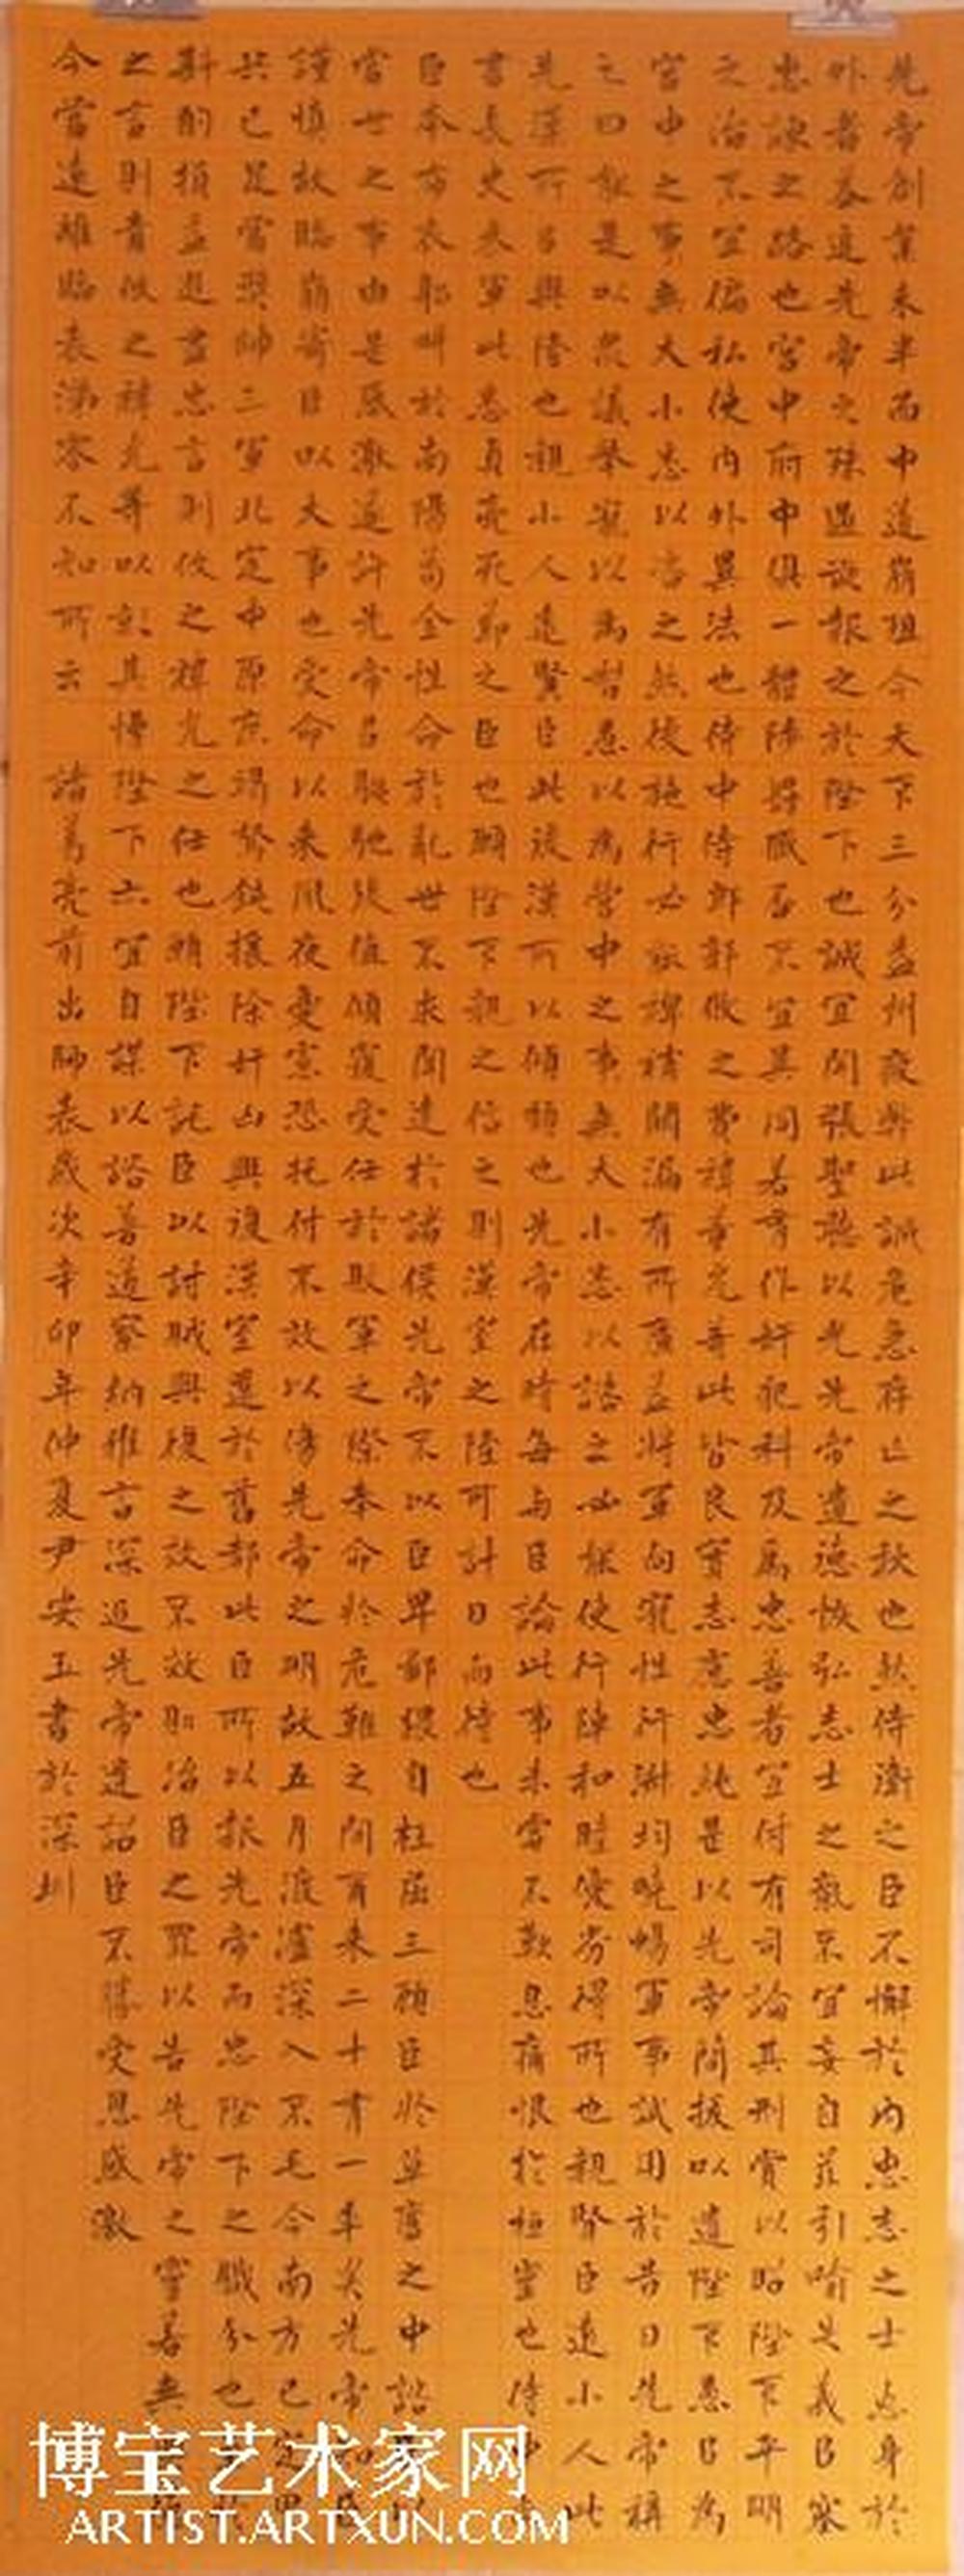 先帝創業未半而中道崩殂今天下三分益州疲弊此誠危急存亡之秋也然侍衛之臣不懈於內忠志之士忘身於
外者蓋追先帝之殊遇欲報之於陛下也誠宜開張聖聽以光先帝遺德恢弘志士之氣不宜妄自菲引喻失義以塞
忠諫之路也宮中府中俱一體陟罰臧否不宜異同若有作奸犯科及為忠善者宜付有司論其刑賞以昭陛下平明
之治不宜偏私使內外異法也侍中侍郎郭攸之費禕董允等此皆良實志慮忠純是以先帝簡拔以遺陛下愚以為
宮中之事無大小悉以咨之然後施行必裨補闕漏有所廣益將軍向寵性行淑均曉暢軍事試用於昔日先帝稱
之曰能是以眾議舉寵以為督愚以為營中之事無大小悉以諮之必能使行陣和睦優劣得所也親賢臣遠小人此
先漢所以興隆也親小人遠賢臣此後漢所以傾頹也先帝在時每與臣論此事未嘗不歎息痛恨於桓靈也侍中
書長史參軍此悉貞亮死節之臣也願陛下親之信之則漢室之隆可計日而待也
臣本布衣躬耕於南陽苟全性命於亂世不求聞達於諸侯先帝不以臣卑鄙猥自枉屈三顧臣於草廬之中諮
當世之事由是感激遂許先帝以驅馳後值傾覆受任於敗軍之際奉命於危難之間爾來二十有一年矣先帝知臣
謹慎故臨崩寄臣以大事也受命以來夙夜憂慮恐托付不效以傷先帝之明故五月渡瀘深入不毛今南方已定甲
兵已足當獎帥三軍北定中原庶竭駑鈍攘除奸凶興復漢室還於舊都此臣所以報先帝而忠陛下之職分也
斟酌損益進盡忠言則攸之禕允之任也願陛下託臣以討賊興復之效不效則治臣之罪以告先帝之靈若無
之言則責攸之禕允等以彰其慢陛下亦宜自謀以諮善道察納雅言深追先帝遺詔臣不勝受恩感激
今當遠離臨表涕零不知所云 諸葛亮前出師表歲次辛卯年仲夏尹安玉書於深圳
博宝艺术家网
ARTIST.ARTXUN.COM